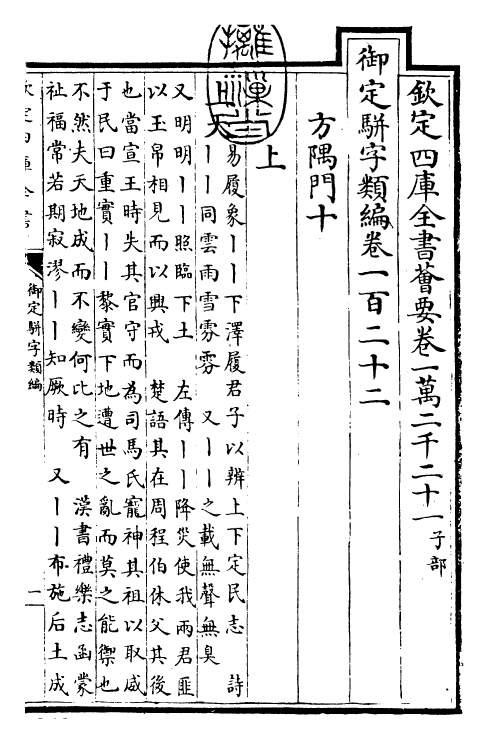 欽定四庫全書薈要卷一萬二千二十一子部
御定駢字類編卷一百二十二
方隅門十
上
上天
易履象丨丨下澤履君子以辨上下定民志 詩
丨丨同雲雨雪雰雰 又丨丨之載無聲無臭
又明明丨丨照臨下土 左傳丨丨降災使我兩君匪
以玉帛相見而以興戎 楚語其在周程伯休父其後
也當宣王時失其官守而為司馬氏寵神其祖以取威
于民曰重實丨丨黎實下地遭世之亂而莫之能禦也
不然夫天地成而不變何比之有 漢書禮樂志函蒙
祉福常若期寂漻丨丨知厥時 又丨丨布施后土成
欽定四庫全書
御定駢字類編
一